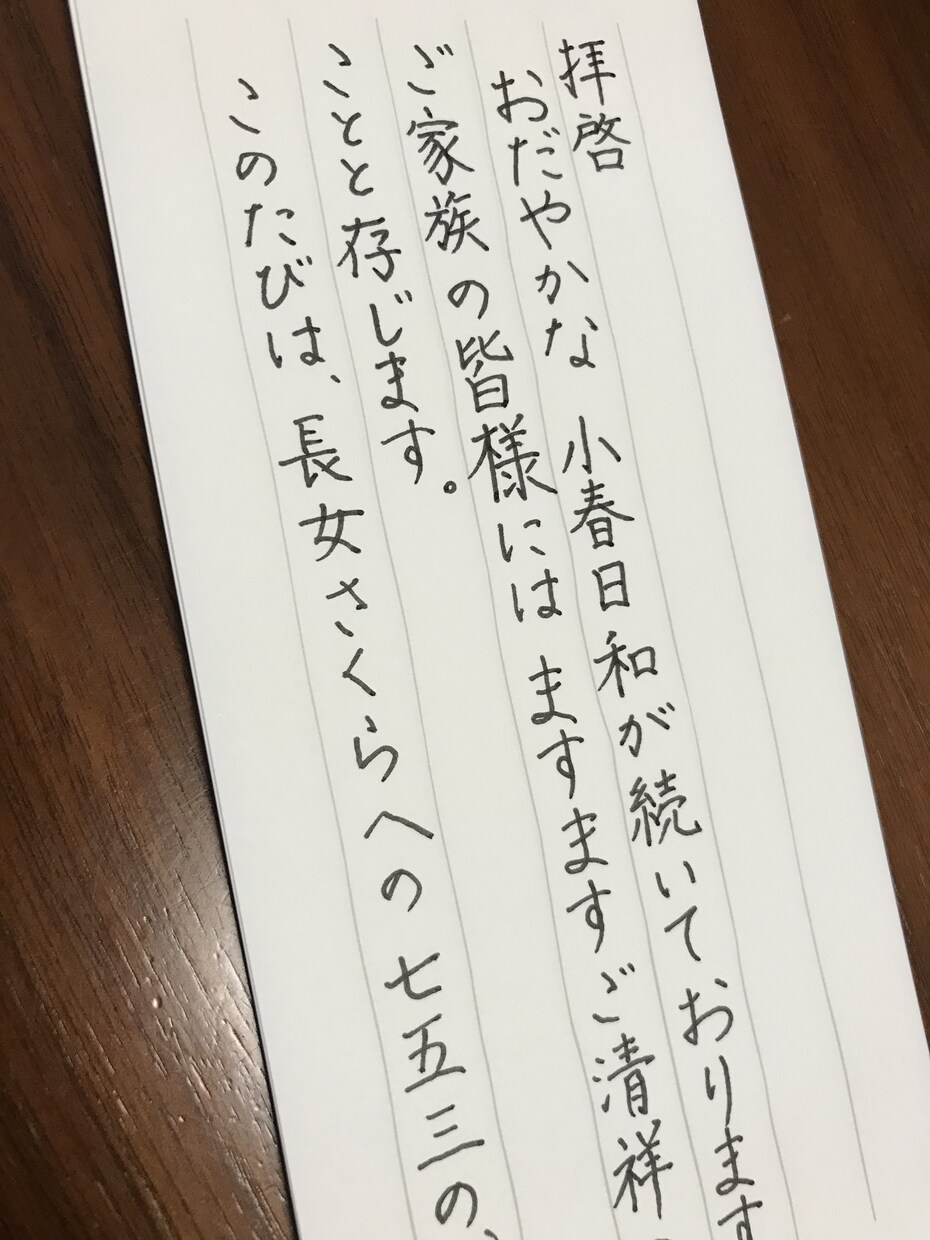 拝啓
おだやかな 小春日和が続いております
ご家族の皆様には ますますご清祥
ことと存じます。
このたびは、長女さくらへの七五三の